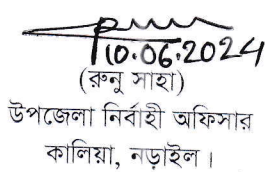 10.06.2024
(রুনু সাহা)
উপজেলা নির্বাহী অফিসার
কালিয়া, নড়াইল।